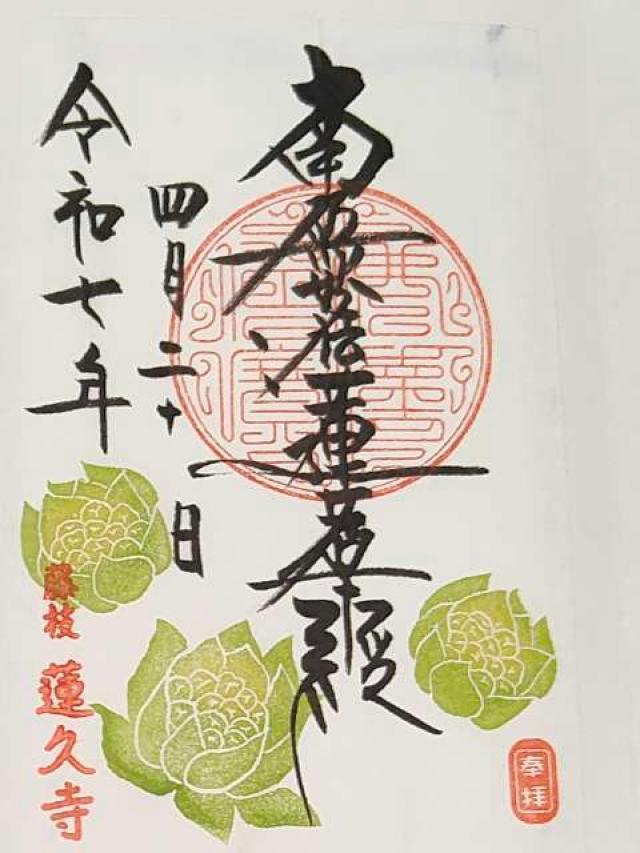 南無妙法蓮華経
四月二十 日
令和七年
藤枝 蓮久寺
奉拝